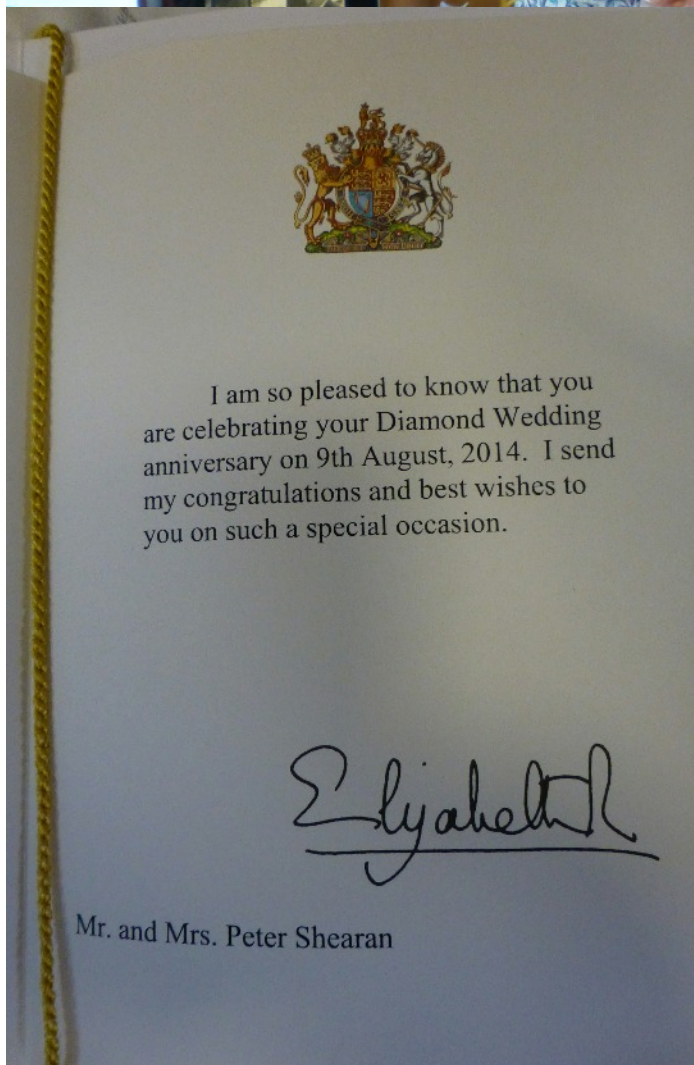 I am so pleased to know that you
are celebrating your Diamond Wedding
anniversary on 9th August, 2014. I send
my congratulations and best wishes to
you on such a special occasion.
Elizabeth R
Mr. and Mrs. Peter Shearan